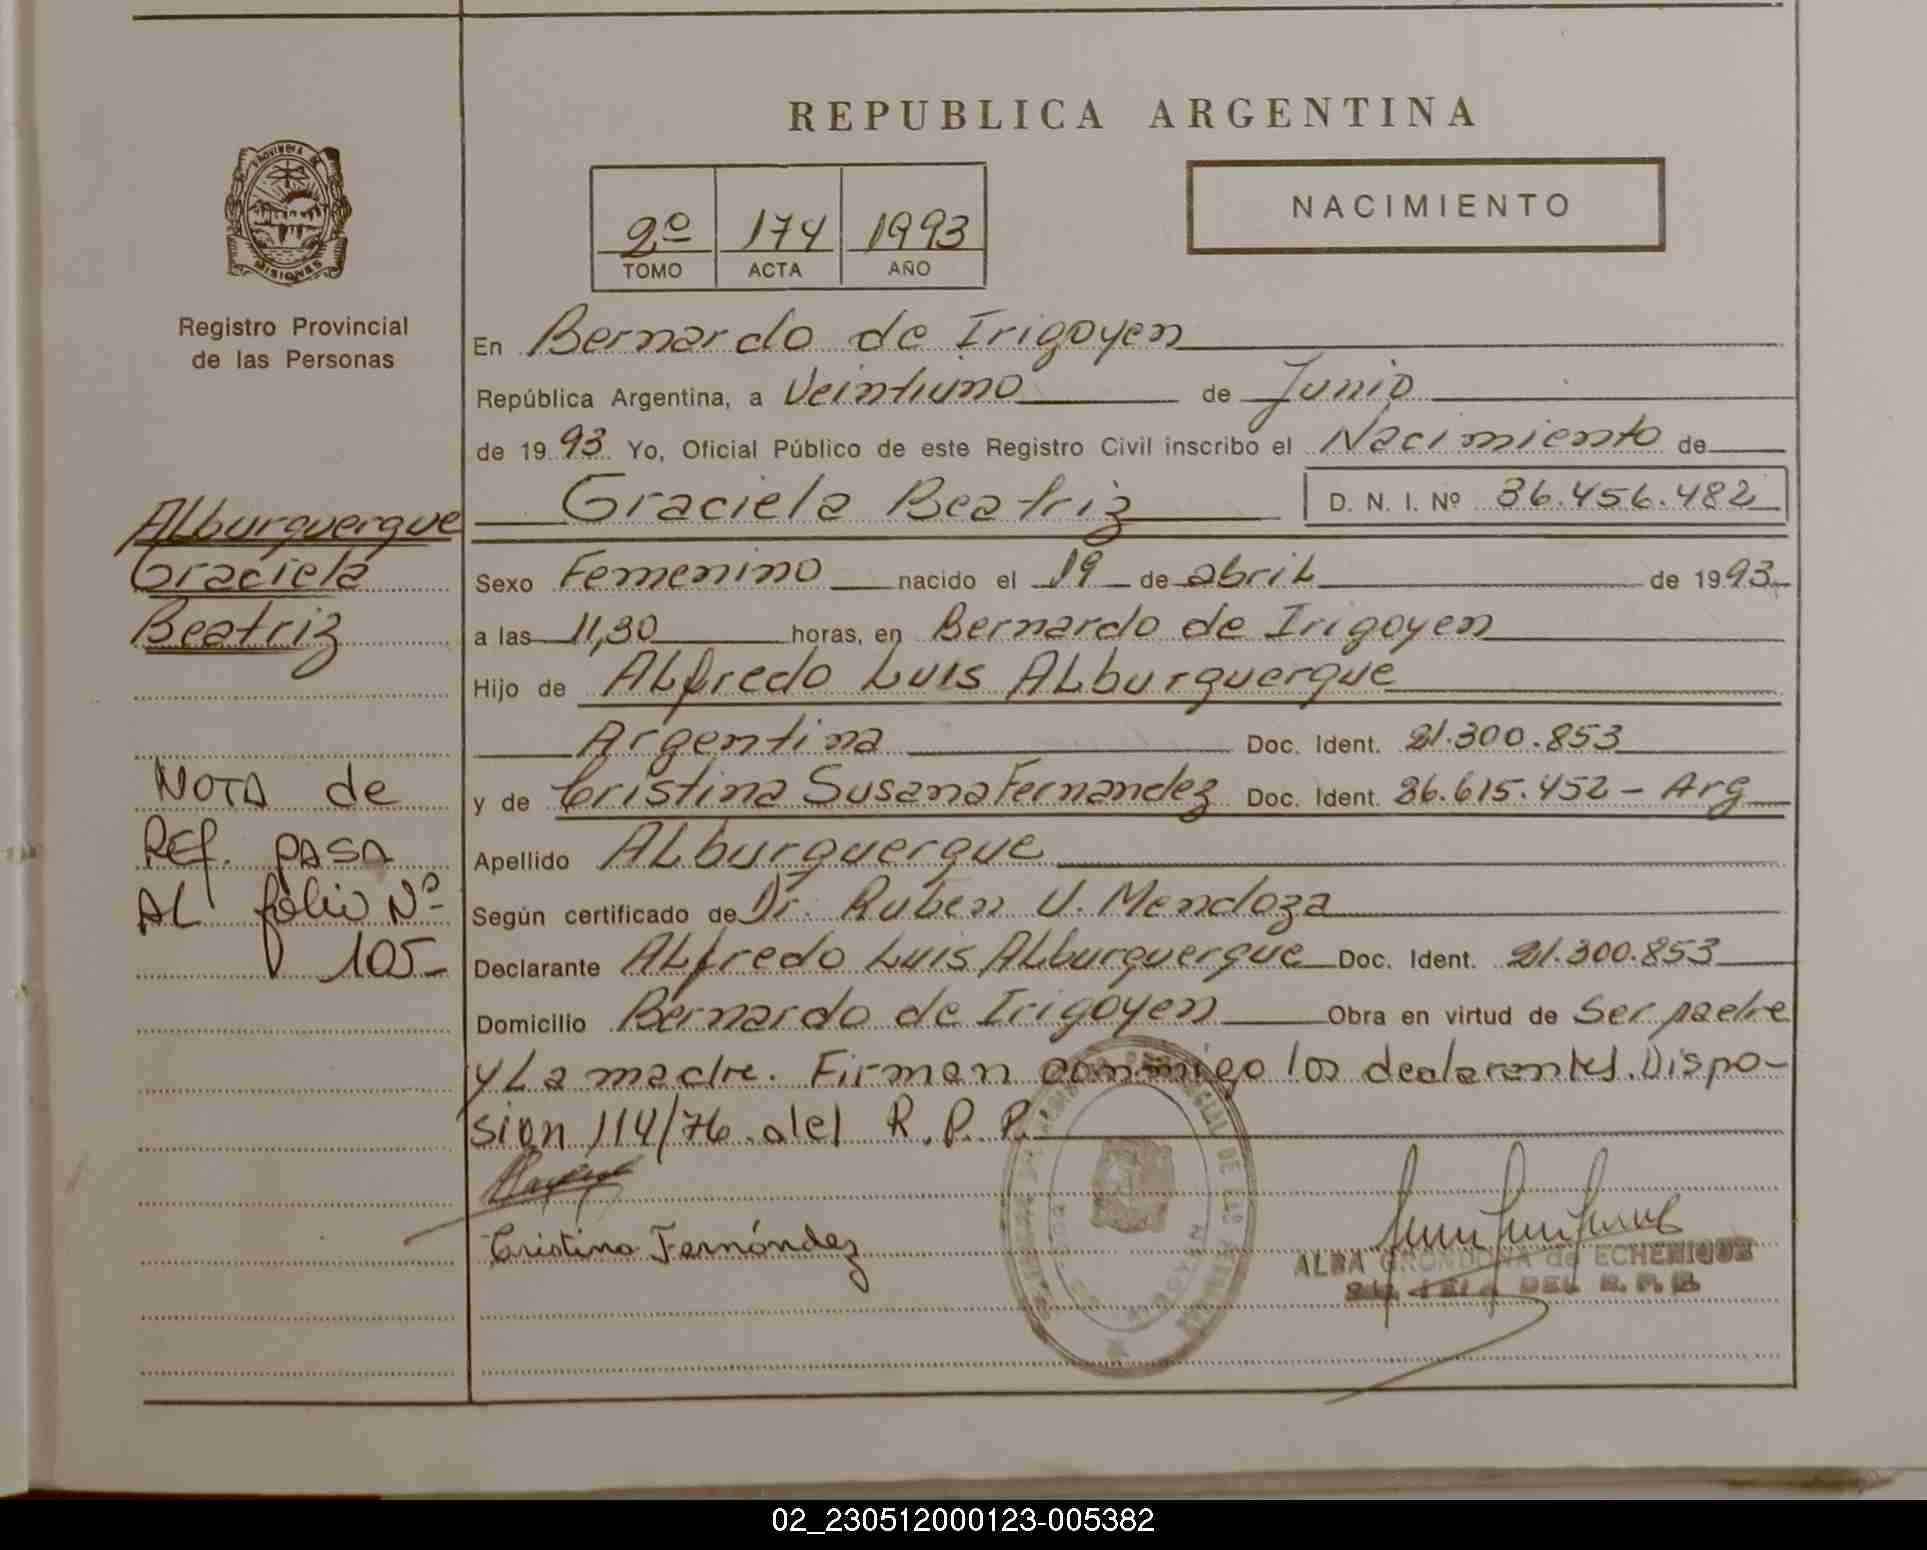 REPUBLICA ARGENTINA
PROVINCIA DE
MISIONES
Registro Provincial
de las Personas
2º 174 1993
TOMO ACTA AÑO
NACIMIENTO
En Bernardo de Irigoyen
República Argentina, a Veintiuno de Junio
de 1993 Yo, Oficial Público de este Registro Civil inscribo el Nacimiento de
Graciela Beatriz D. N. I. Nº 36.456.482
Alburquerque
Graciela
Beatriz
Sexo Femenino nacido el 19 de abril de 1993
a las 11,30 horas, en Bernardo de Irigoyen
Hijo de Alfredo Luis Alburquerque
Argentina Doc. Ident. 21.300.853
y de Cristina Susana Fernandez Doc. Ident. 26.615.452 - Arg
Apellido Alburquerque
Según certificado de Dr. Ruben V. Mendoza
Declarante Alfredo Luis Alburquerque Doc. Ident. 21.300.853
Domicilio Bernardo de Irigoyen Obra en virtud de Ser padre
y La madre. Firman conmigo los declarantes. Dispo-
sion 114/76 del R. P. P.
NOTA de
REF. PASA
AL folio Nº
105-
Cristina Fernández
ALBA GRONDONA de ECHENIQUE
DEL R. P. P.
02_230512000123-005382